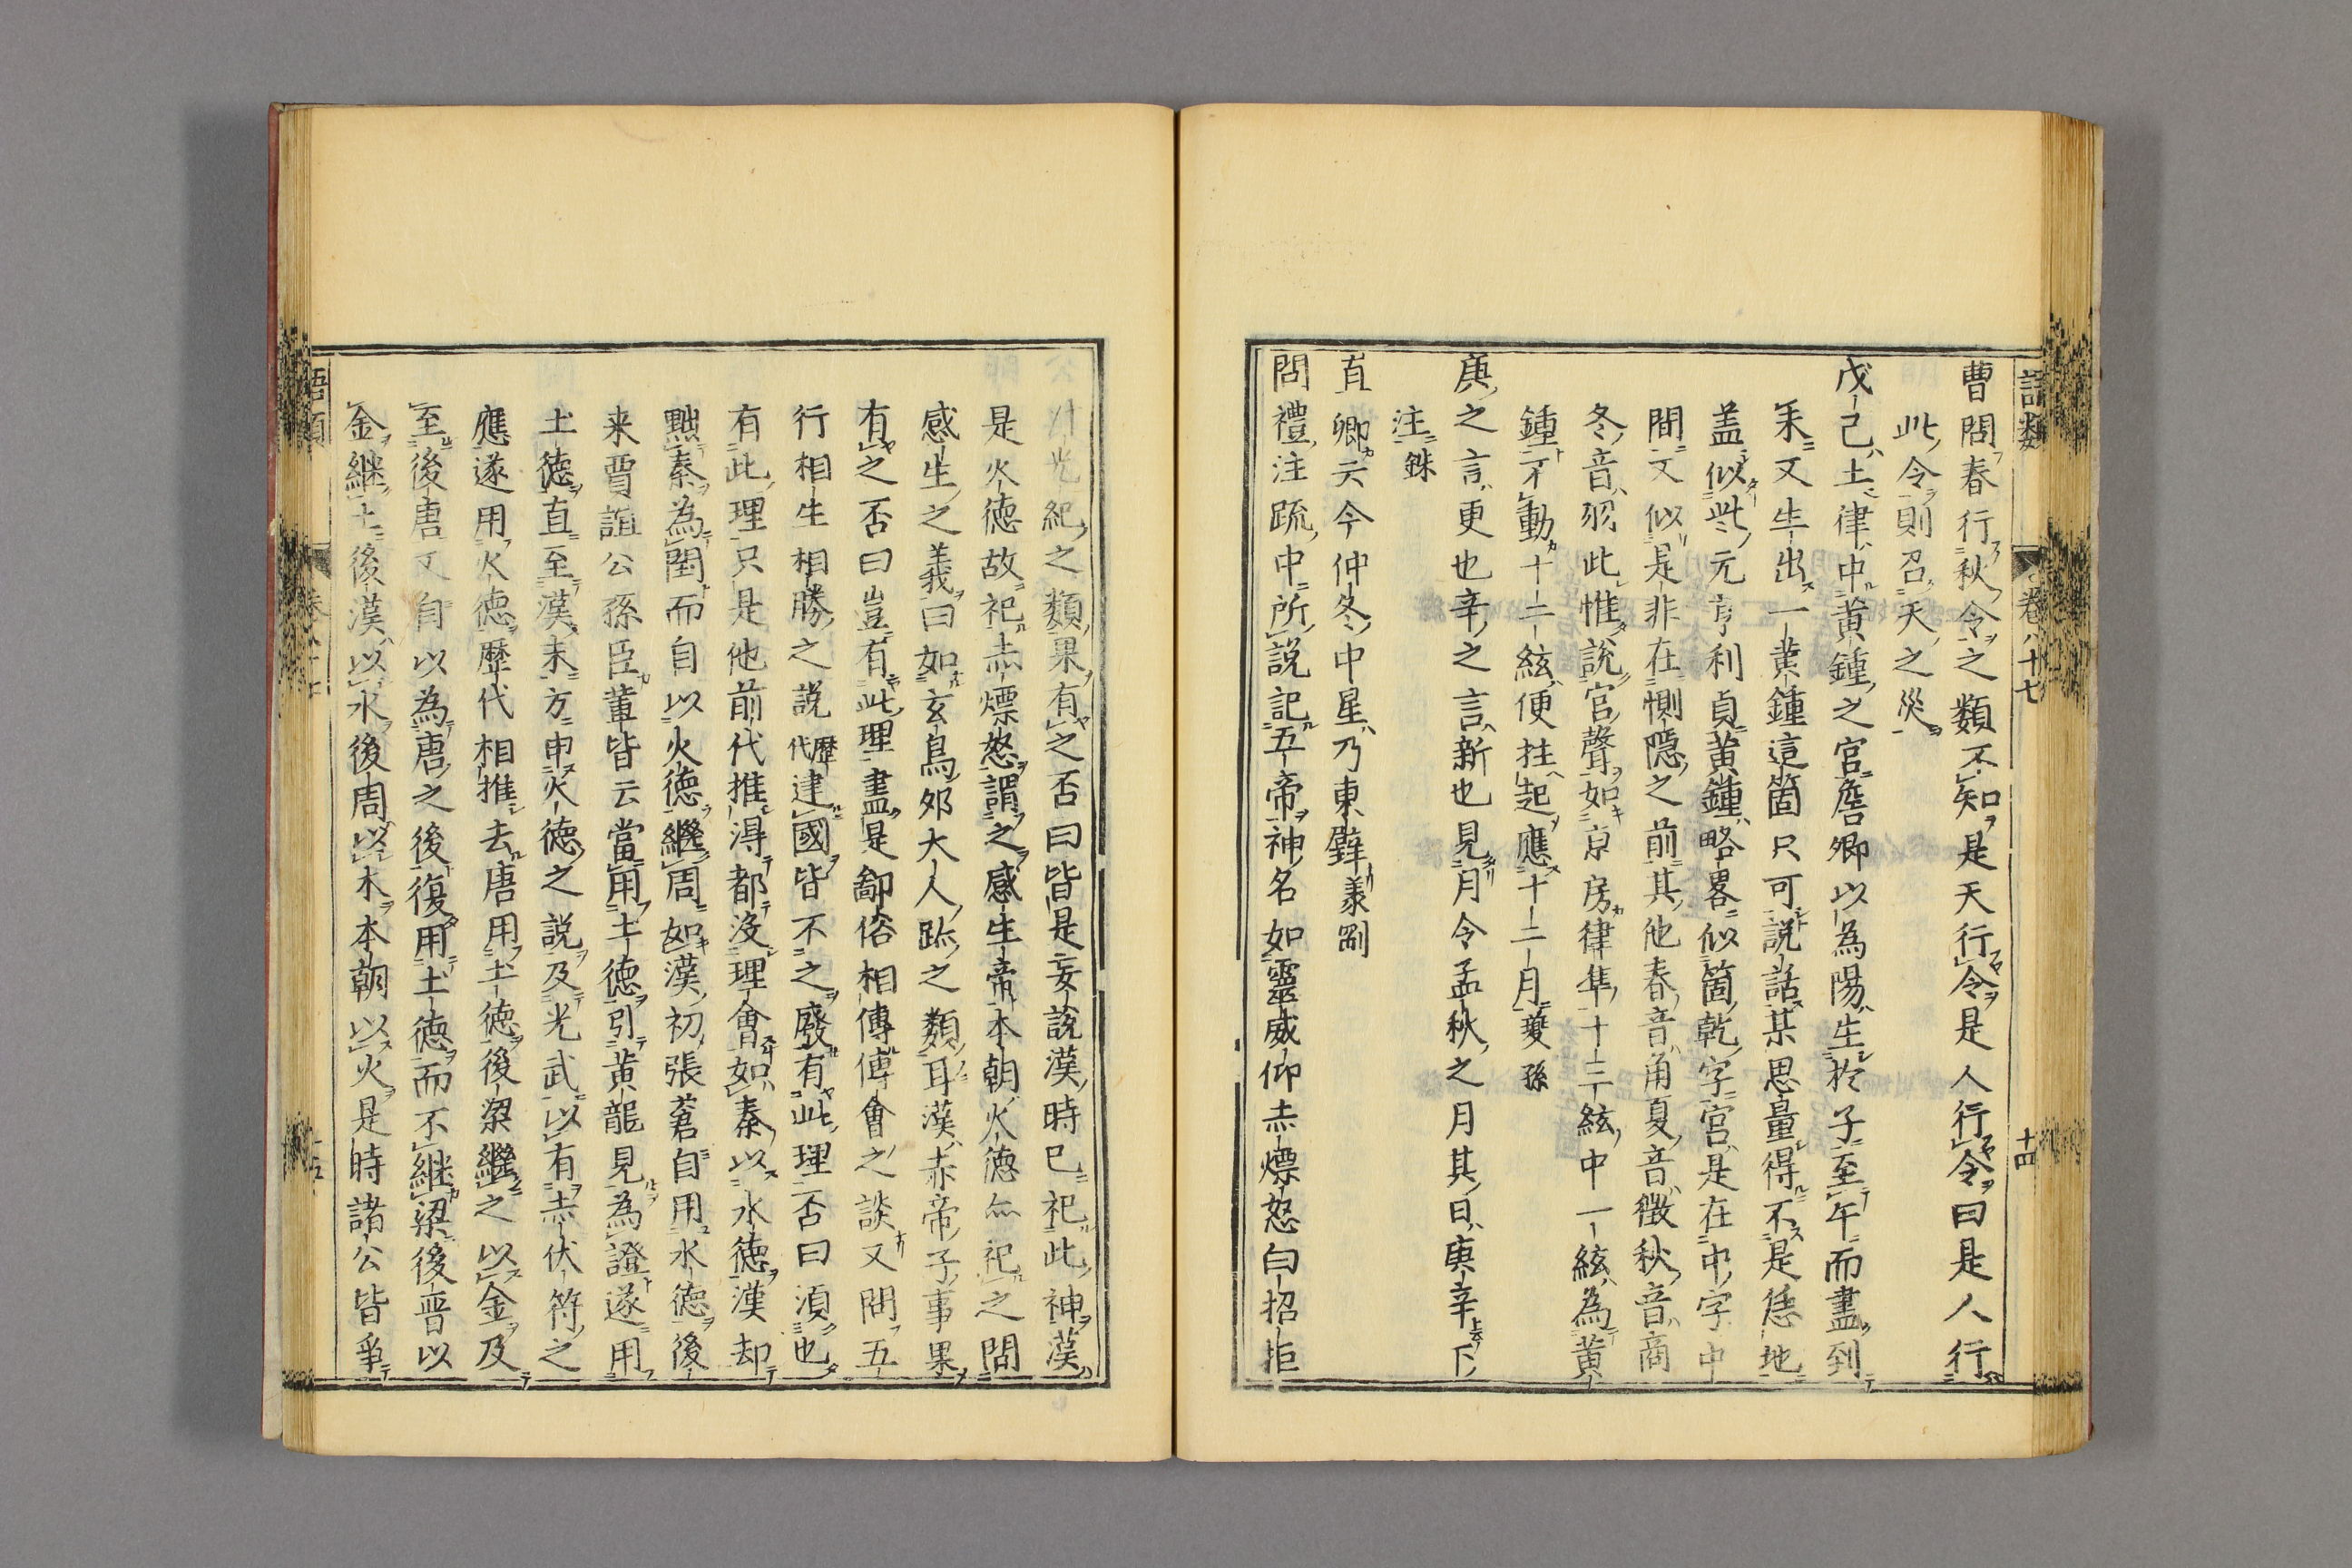 語類
卷八十七
十四
曹問春行秋令之類不知是天行令是人行令曰是人行
此令則召天之災
戊己土律中黃鍾之宮詹卿以為陽生於子至午而盡到
未又生出一黃鍾這箇只可說話某思量得不是恁地
盖似此元亨利貞黃鍾略畧似箇乾字宮是在中字中
間又似是非在惻隱之前其他春音角夏音徵秋音商
冬音羽此惟說宮聲如京房律準十三絃中一絃為黃
鍾不動十二絃便拄起應十二月夔孫
庚之言更也辛之言新也見月令孟秋之月其日庚辛下
注銖
直卿云今仲冬中星乃東壁義剛
問禮注疏中所說記五帝神名如靈威仰赤熛怒白招拒
汁光紀之類果有之否曰皆是妄說漢時已祀此神漢
是火德故祀赤熛怒謂之感生帝本朝火德亦祀之問
感生之義曰如玄鳥卵大人跡之類耳漢赤帝子事果
有之否曰豈有此理盡是鄙俗相傳傅會之談又問五
行相生相勝之說歷代建國皆不之廢有此理否曰須也
有此理只是他前代推得都沒理會如秦以水德漢却
黜秦為閏而自以火德繼周如漢初張蒼自用水德後
来賈誼公孫臣輩皆云當用土德引黃龍見為證遂用
土德直至漢末方申火德之說及光武以有赤伏符之
應遂用火德歷代相推去唐用土德後梁繼之以金及
至後唐又自以為唐之後復用土德而不継梁後晋以
金継土後漢以水後周以木本朝以火是時諸公皆爭
語類